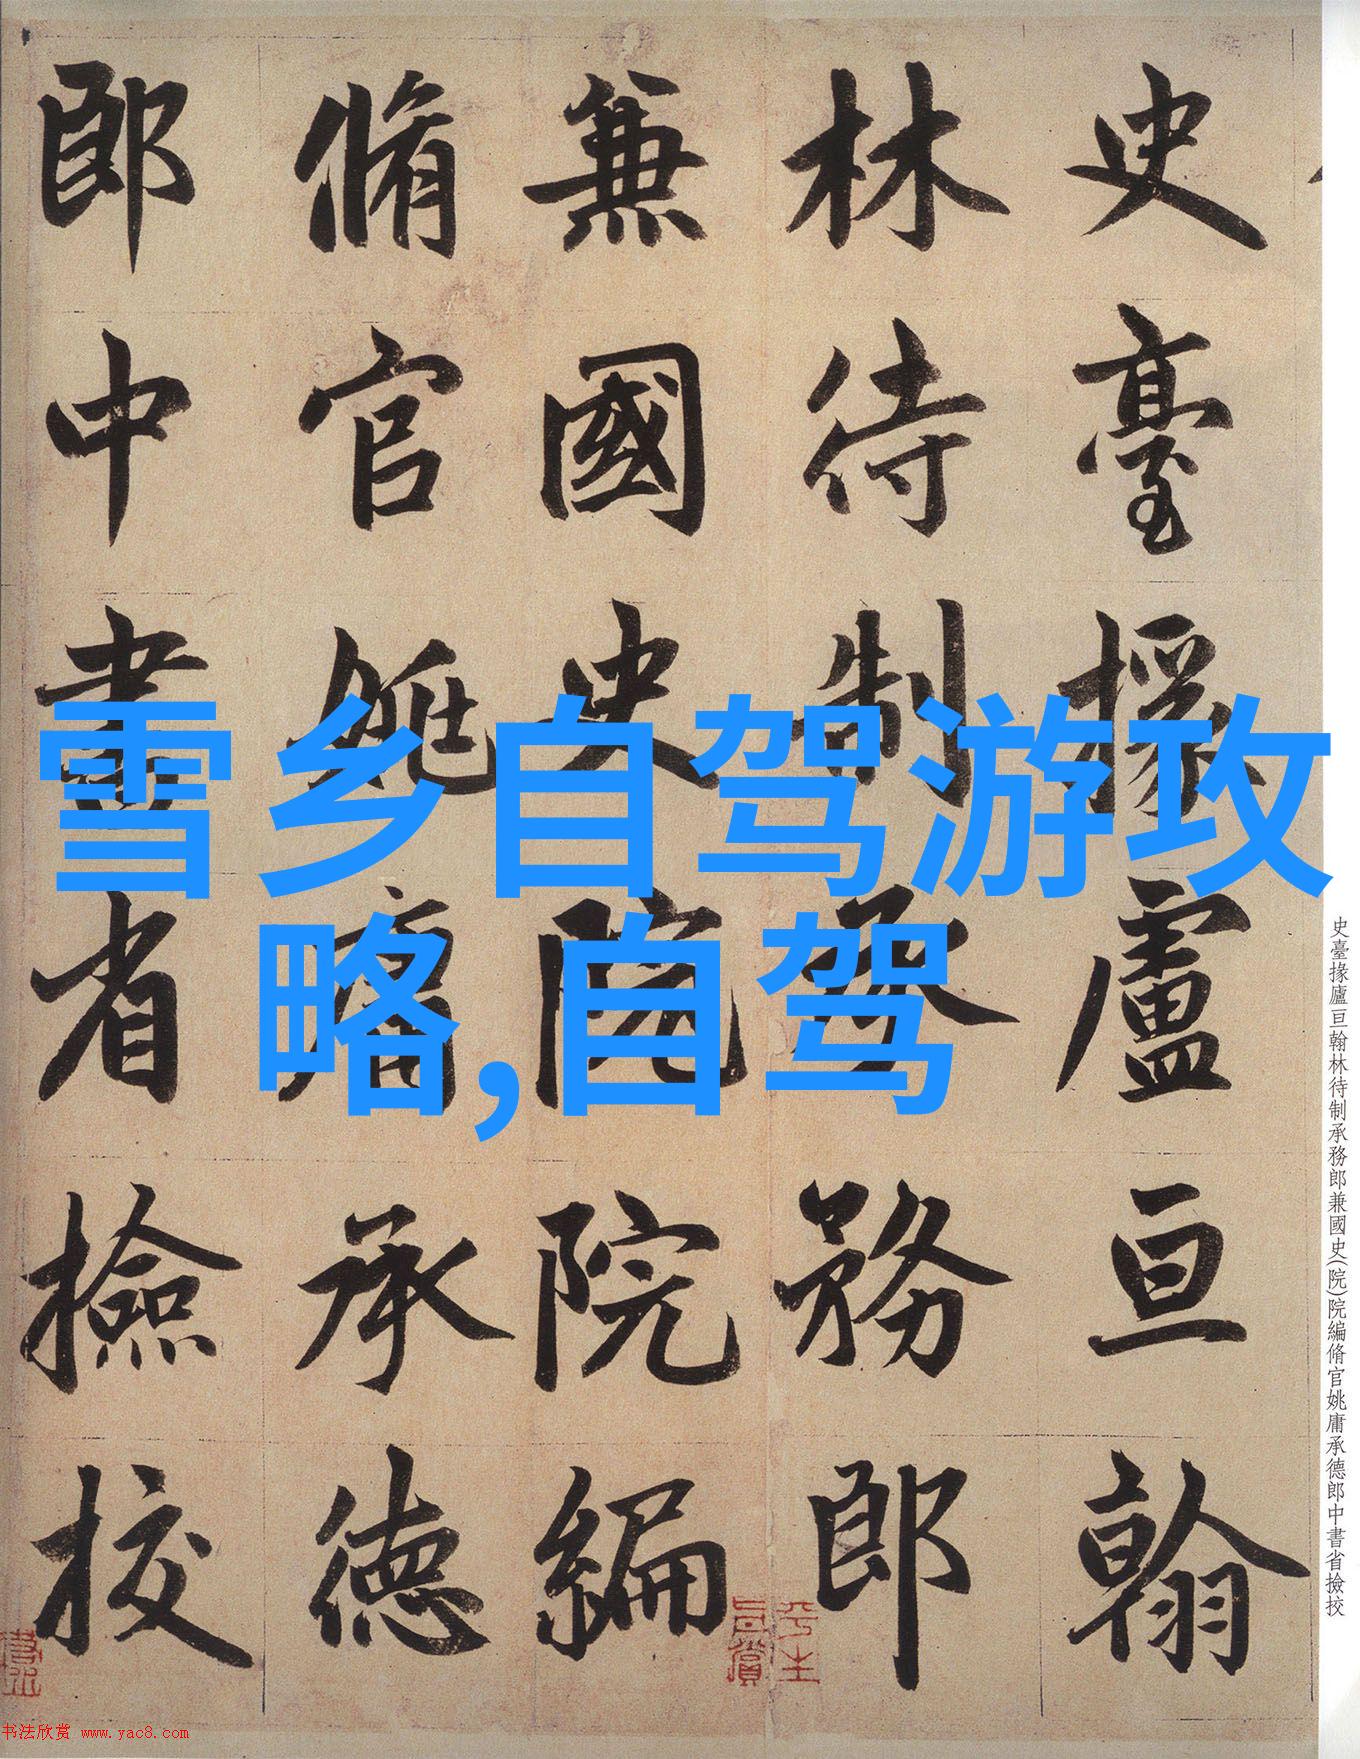 史臺掾盧亘翰
林待制承務郎
兼國史院院編
脩官姚庸承德
郎中書省撿挍
雪乡自驾游攻
略,自驾
史臺掾廬亘翰林待制承務郎兼國史(院)院編脩官姚庸承德郎中書省撿挍
书法欣赏 www.yac8.com